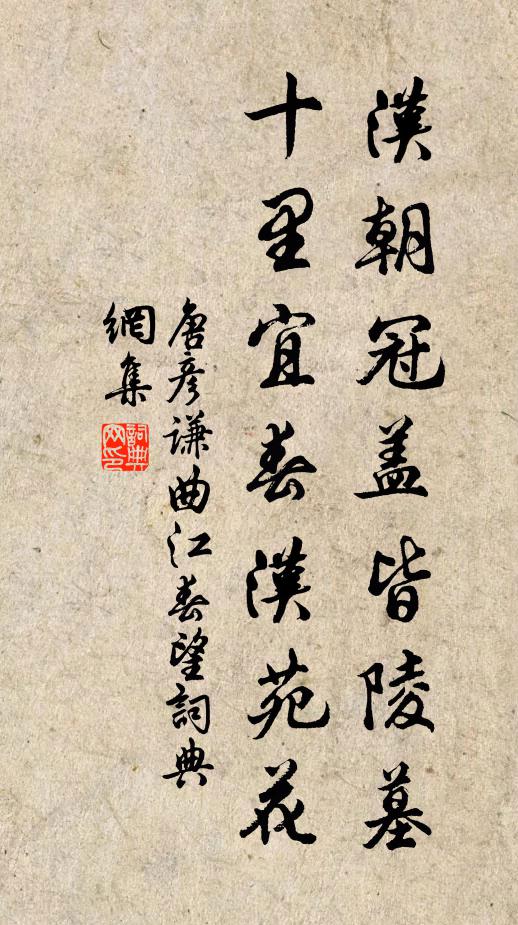 漢朝冠盖皆陵墓
十里宜春漢苑花
唐彦谦曲江春望詞典
網集
詞典网印